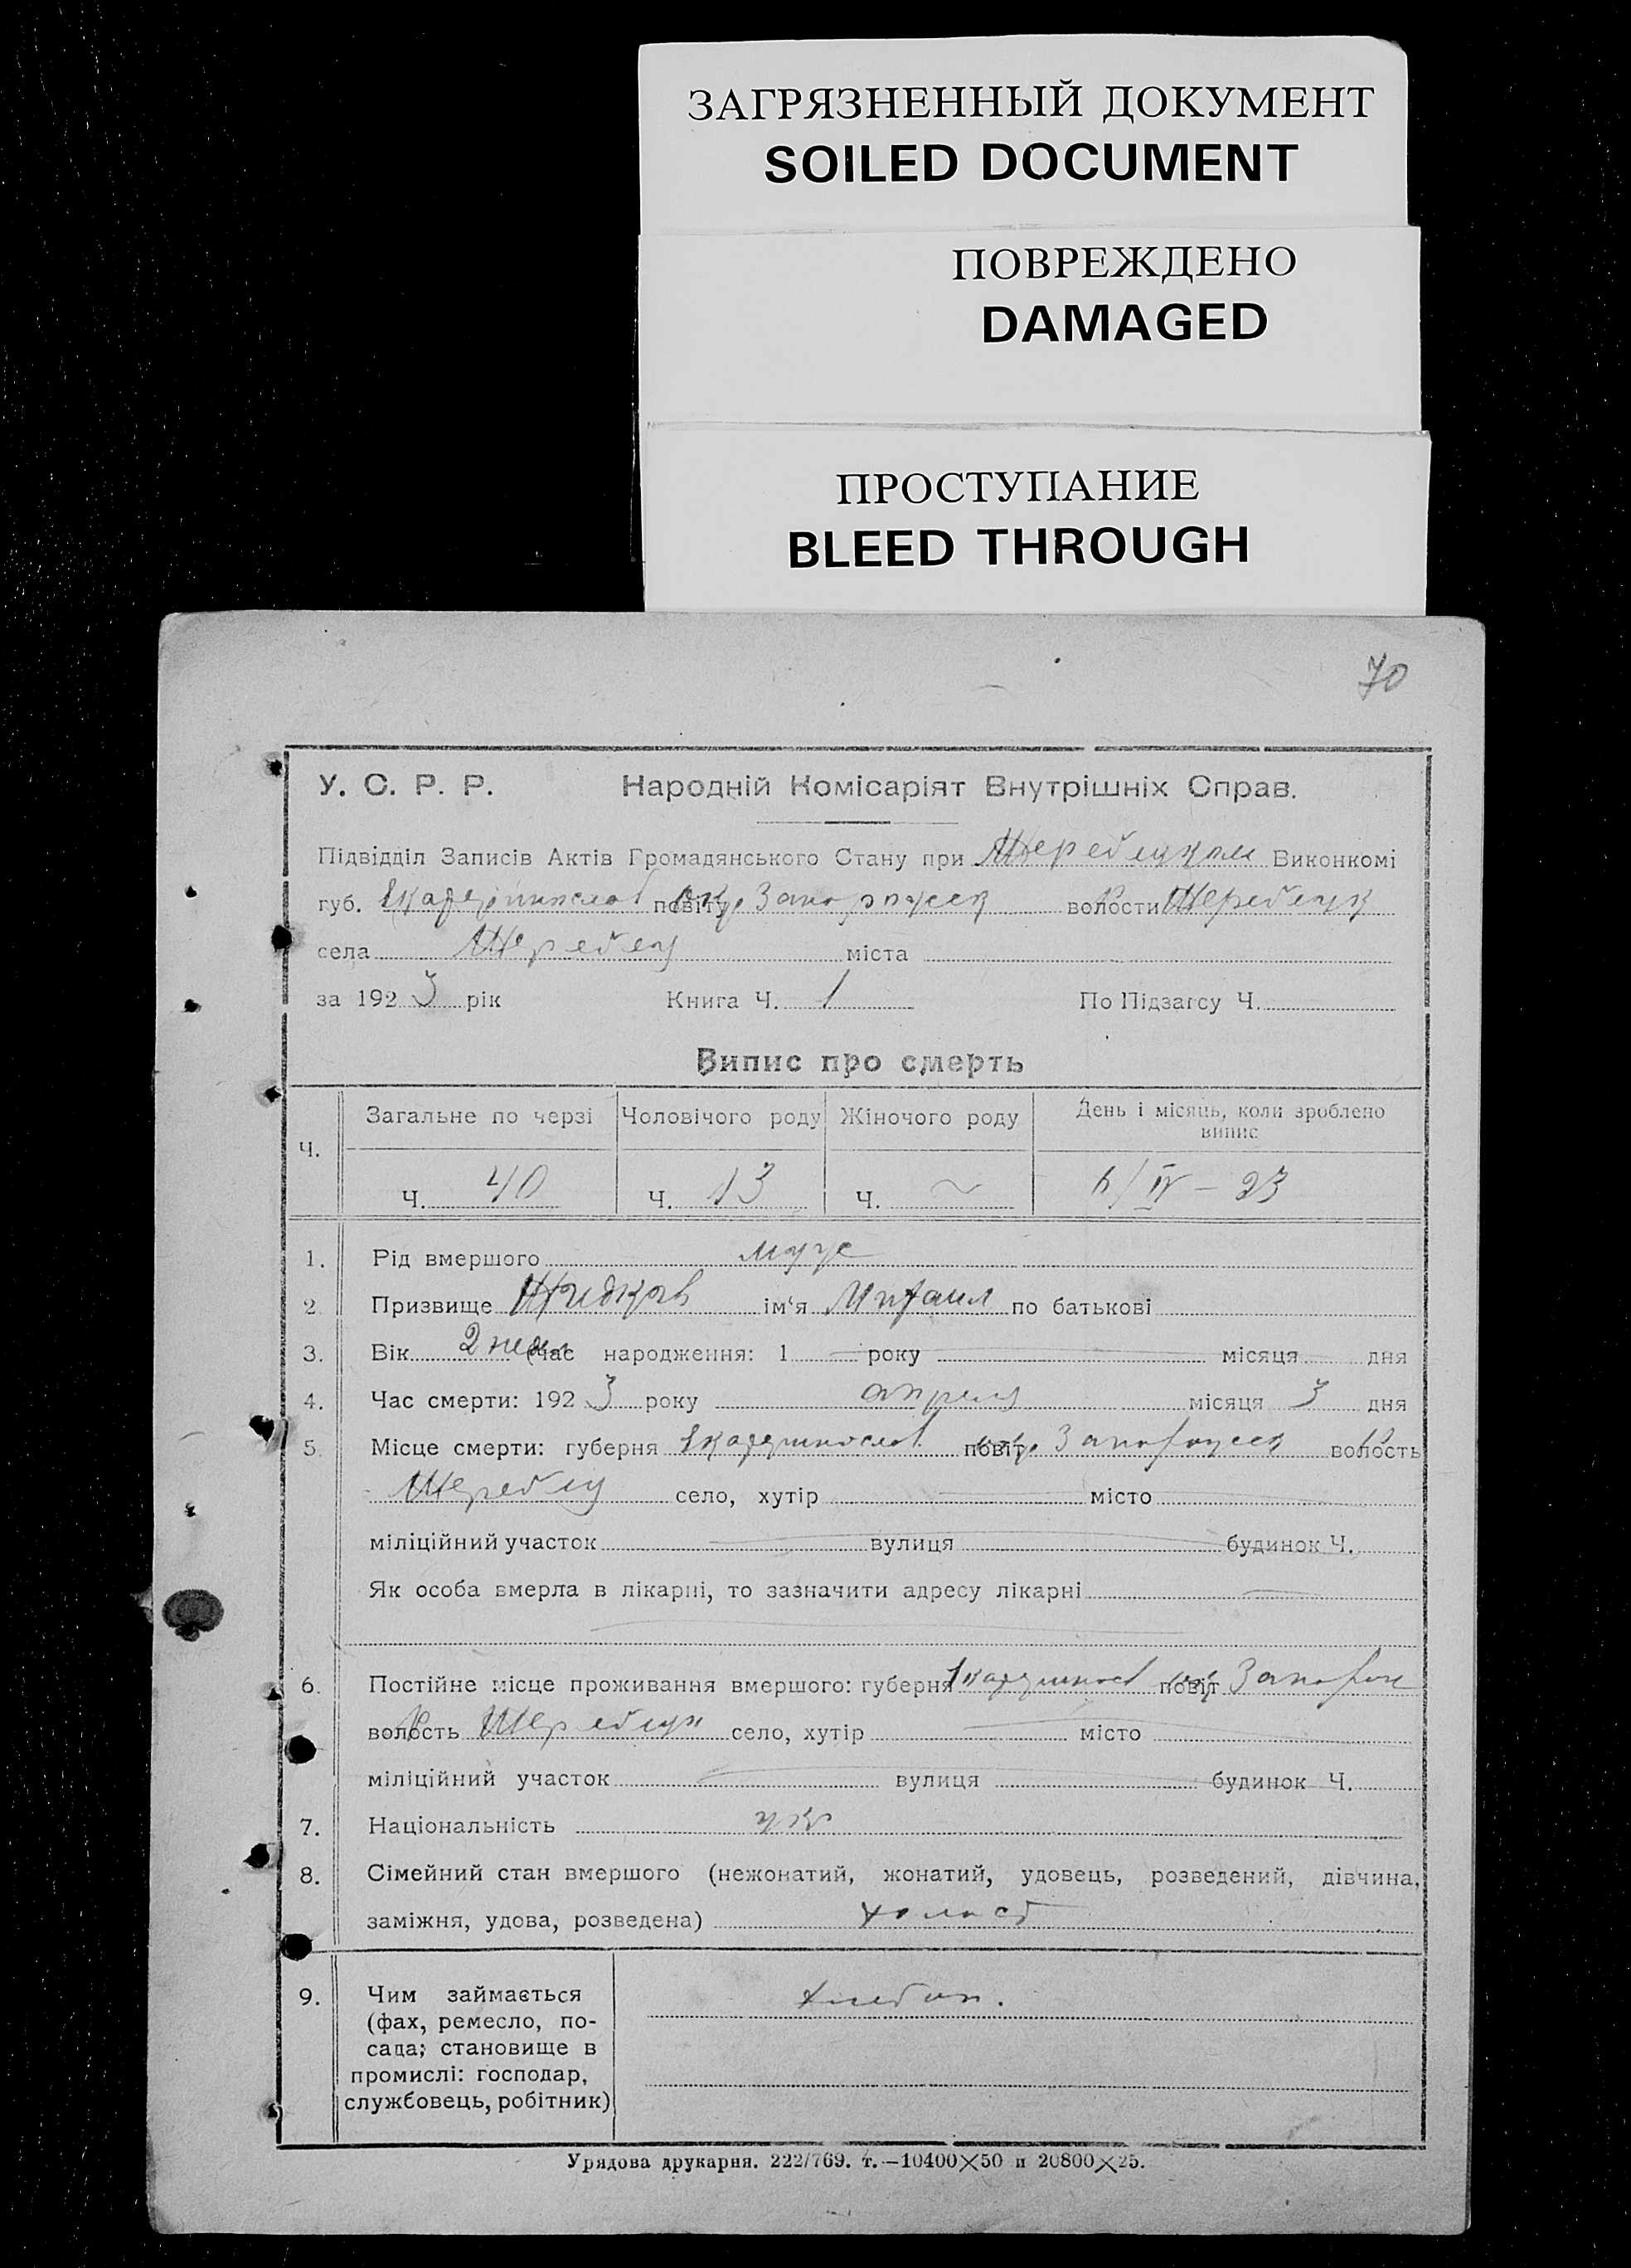 ЗАГРЯЗНЕННЫЙ ДОКУМЕНТ
SOILED DOCUMENT
ПОВРЕЖДЕНО
DAMAGED
ПРОСТУПАНИЕ
BLEED THROUGH
70
У. С. Р. Р. Народній Комісаріят Внутрішніх Справ.
Підвідділ Записів Актів Громадянського Стану при Жеребецком Виконкомі
губ. Екатеринослав повіту окр. Запорожск волости Р Жеребецк
села Жеребец міста
за 1923 рік Книга Ч. 1 По Підзагсу Ч.
Випис про смерть
Ч. Загальне по черзі Чоловічого роду Жіночого роду День і місяць, коли зроблено випис
Ч. 40 Ч. 13 Ч. ~ 6/IV – 23
1. Рід вмершого муж
2. Призвище Жидков ім'я Михаил по батькові
3. Вік 2 нед (час народження: 1 року місяця дня
4. Час смерти: 1923 року апреля місяця 3 дня
5. Місце смерти: губерня Екатеринослав повіт окр. Запорожск волость Р
Жеребец село, хутір місто
міліційний участок вулиця будинок Ч.
Як особа вмерла в лікарні, то зазначити адресу лікарні
6. Постійне місце проживання вмершого: губерня Екатериносл повіт окр Запорож
волость Р Жеребецк село, хутір місто
міліційний участок вулиця будинок Ч.
7. Національність укр
8. Сімейний стан вмершого (нежонатий, жонатий, удовець, розведений, дівчина,
заміжня, удова, розведена) холост
9. Чим займається хлебоп.
(фах, ремесло, по-
сада; становище в
промислі: господар,
службовець, робітник)
Урядова друкарня. 222/769. т.—10400×50 п 20800×25.